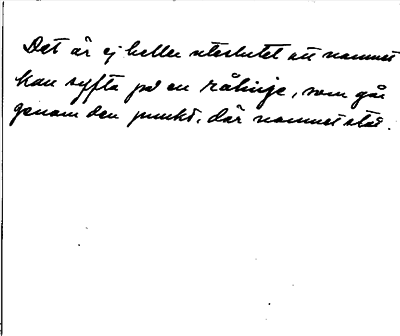 Det är ej heller uteslutet att namnet
kan syfta på en rålinje, som går
genom den punkt, där namnet står.